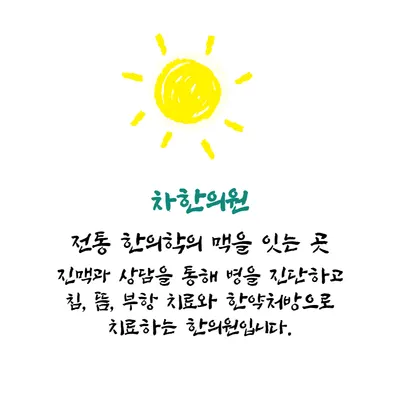 차한의원
전통 한의학의 맥을 잇는 곳
진맥과 상담을 통해 병을 진단하고
침, 뜸, 부항 치료와 한약처방으로
치료하는 한의원입니다.